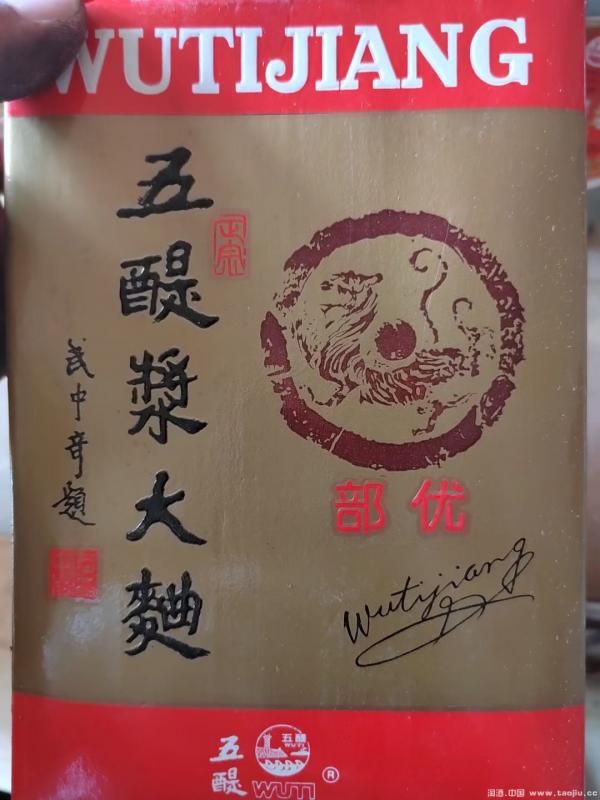 WUTIJIANG
五醍漿大麯
正宗
武中奇題
部优
Wutijiang
五醍
五醍
WUTI
WUTI
®
淘酒.中国 www.taojiu.cc